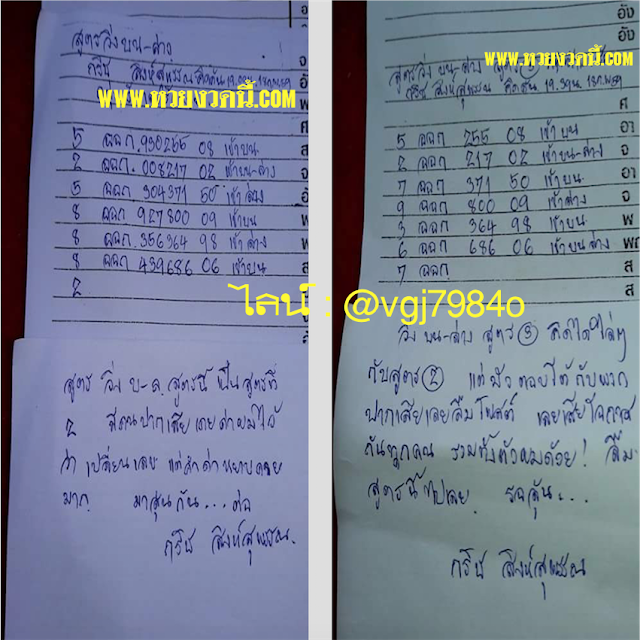 สูตรวิ่งบน-ล่าง
กริช สิงห์สุพรรณ
www.หวยงวดนี้.com
5 ฉฉก. 930255 08 เข้าบน
2 ฉฉก. 008217 02 เข้าบน-ล่าง
5 ฉฉก. 304371 50 เข้าล่าง
8 ฉฉก. 927800 09 เข้าบน
8 ฉฉก. 356364 98 เข้าล่าง
8 ฉฉก 439686 06 เข้าบน
2
สูตร วิ่ง บ-ล. สูตรนี้ เป็น สูตรที่
2 มีคนปากเสียเคยด่าผมไว้
ว่า เปลี่ยนเลย แต่
มาก. มาลุ้นกัน... ต่อ
กริช สิงห์สุพรรณ.
www.หวยงวดนี้.com
สูตรวิ่ง บน-ล่าง สูตร ③
กริช สิงห์สุพรรณ
5 ฉฉก 255 08 เข้าบน
2 ฉฉก 217 02 เข้าบน-ล่าง
7 ฉฉก 371 50 เข้าบน
9 ฉฉก 800 09 เข้าล่าง
3 ฉฉก 364 98 เข้าบน
6 ฉฉก 686 06 เข้าบน ล่าง
7 ฉฉก
ไลน์ : @vgj7984o
วิ่ง บน-ล่าง สูตร ③ คิดได้ไล่ๆ
กับสูตร ② แต่ มัวตอบโต้กับพวก
ปากเสียเลยลืมโพสต์ เลยเสียโอกาส
กันทุกคน รวมทั้งตัวผมด้วย! ลืม
สูตรนี้ไปเลย. รอลุ้น...
กริช สิงห์สุพรรณ